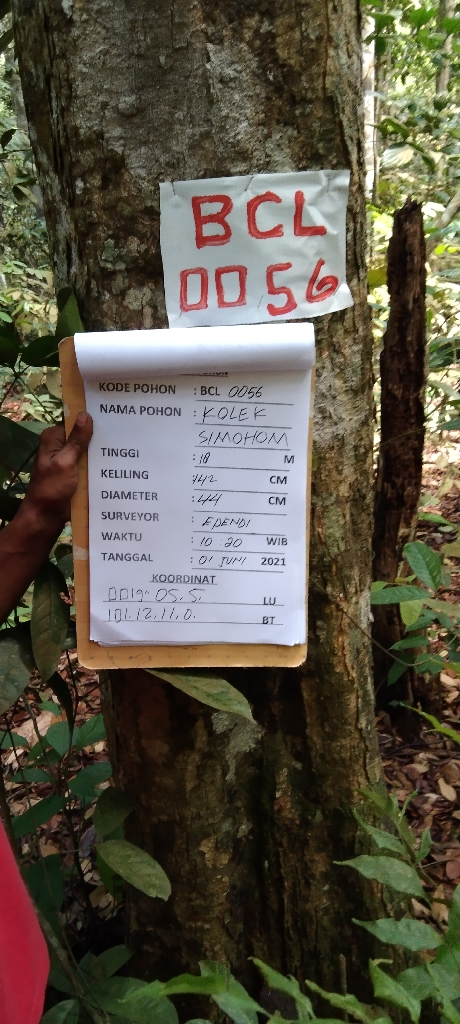 BCL
0056
KODE POHON : BCL 0056
NAMA POHON : KOLEK
SIMOHOM
TINGGI : 18 M
KELILING 142 CM
DIAMETER : 44 CM
SURVEYOR : EPENDI
WAKTU : 10 20 WIB
TANGGAL : 01 JUNI 2021
KOORDINAT
0019" 05.5. LU
101.12.11.0. BT